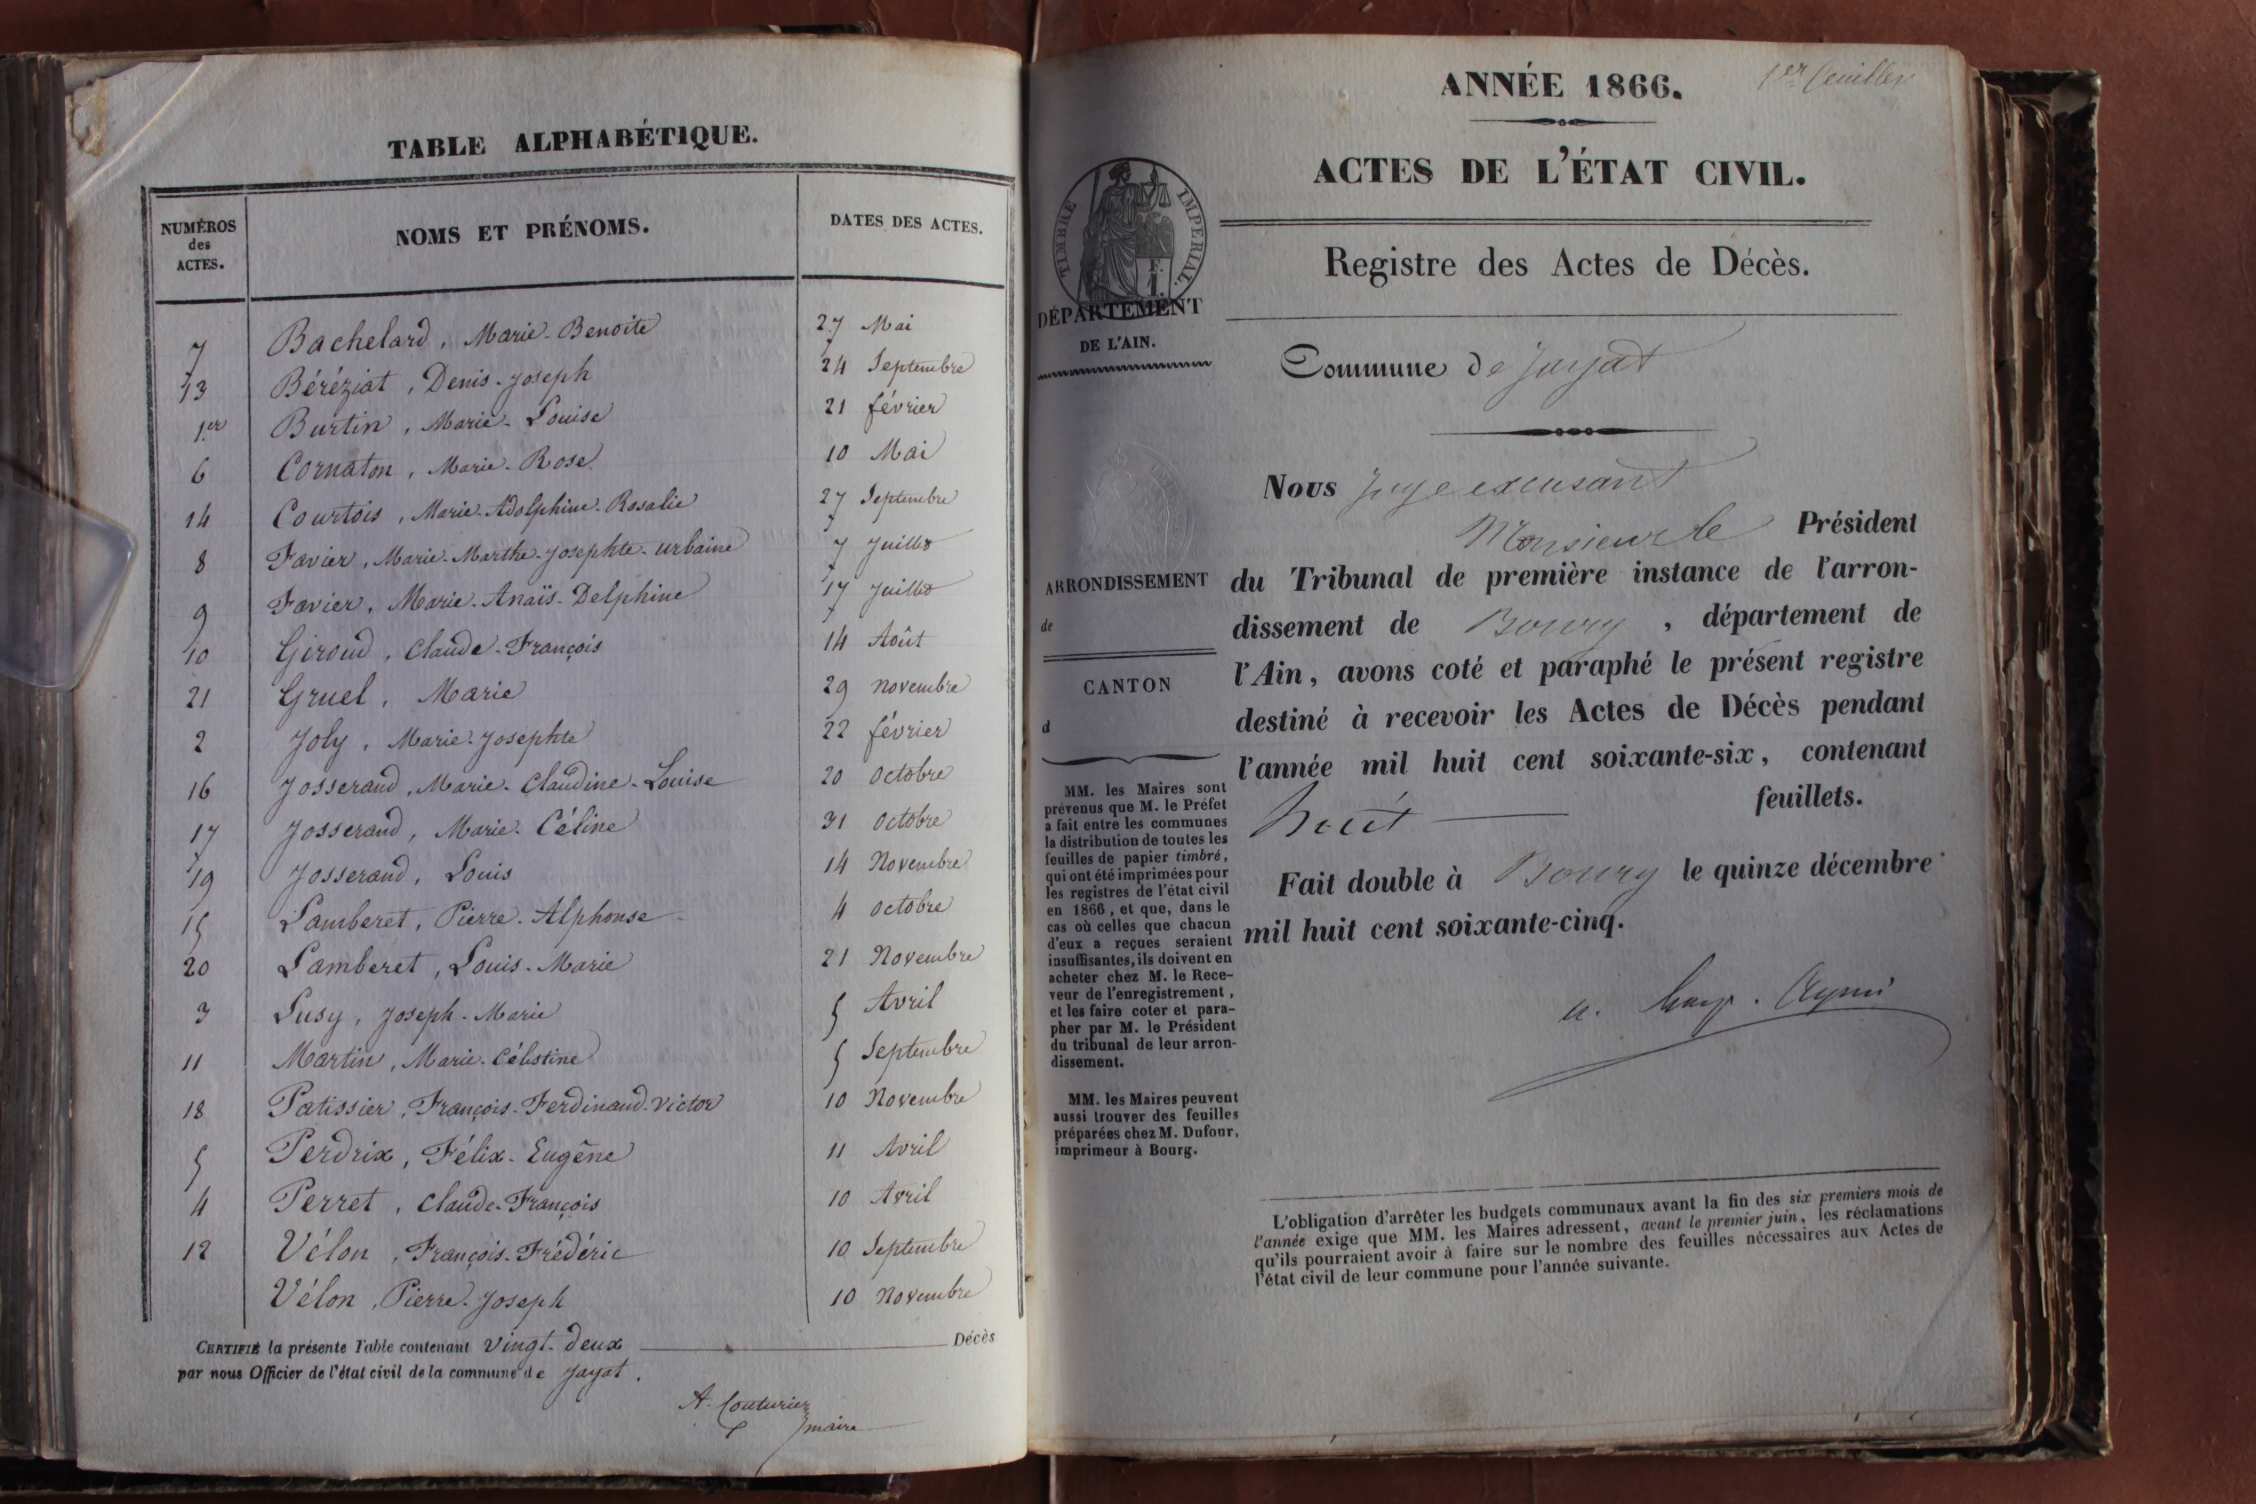 TABLE ALPHABÉTIQUE.
NUMÉROS des ACTES.
NOMS ET PRÉNOMS.
DATES DES ACTES.
7 Bachelard, Marie-Benoite 27 Mai
13 Béréziat, Denis-Joseph 24 Septembre
1.er Burtin, Marie-Louise 21 février
6 Cornaton, Marie-Rose 10 Mai
14 Courtois, Marie-Adolphine-Rosalie 27 Septembre
8 Favier, Marie-Marthe-Josephte-urbaine 7 Juillet
9 Favier, Marie-Anaïs-Delphine 17 Juillet
10 Giroud, Claude-François 14 Août
21 Gruel, Marie 29 novembre
2 Joly, Marie-Josephte 22 février
16 Josserand, Marie-Claudine-Louise 20 Octobre
17 Josserand, Marie-Céline 31 Octobre
19 Josserand, Louis 14 Novembre
15 Lamberet, Pierre-Alphonse 4 Octobre
20 Lamberet, Louis-Marie 21 Novembre
3 Lusy, Joseph-Marie 5 Avril
11 Martin, Marie-Célestine 5 Septembre
18 Patissier, François-Ferdinand-Victor 10 Novembre
5 Perdrix, Félix-Eugène 11 Avril
4 Perret, Claude-François 10 Avril
12 Vélon, François-Frédéric 10 Septembre
Vélon, Pierre-Joseph 10 Novembre
CERTIFIÉ la présente Table contenant Vingt-deux Décès
par nous Officier de l'état civil de la commune de Jayat.
A. Couturier
maire
1er feuillet
ANNÉE 1866.
ACTES DE L'ÉTAT CIVIL.
TIMBRE IMPERIAL.
1 F.
Registre des Actes de Décès.
DÉPARTEMENT
DE L'AIN.
Commune de Jayat
Nous Juge excusant
Monsieur le Président
du Tribunal de première instance de l'arron-
dissement de Bourg, département de
l'Ain, avons coté et paraphé le présent registre
destiné à recevoir les Actes de Décès pendant
l'année mil huit cent soixante-six, contenant
huit feuillets.
Fait double à Bourg le quinze décembre
mil huit cent soixante-cinq.
ARRONDISSEMENT
de
CANTON
d
MM. les Maires sont
prévenus que M. le Préfet
a fait entre les communes
la distribution de toutes les
feuilles de papier timbré,
qui ont été imprimées pour
les registres de l'état civil
en 1866, et que, dans le
cas où celles que chacun
d'eux a reçues seraient
insuffisantes, ils doivent en
acheter chez M. le Rece-
veur de l'enregistrement,
et les faire coter et para-
pher par M. le Président
du tribunal de leur arron-
dissement.
MM. les Maires peuvent
aussi trouver des feuilles
préparées chez M. Dufour,
imprimeur à Bourg.
L'obligation d'arrêter les budgets communaux avant la fin des six premiers mois de
l'année exige que MM. les Maires adressent, avant le premier juin, les réclamations
qu'ils pourraient avoir à faire sur le nombre des feuilles nécessaires aux Actes de
l'état civil de leur commune pour l'année suivante.